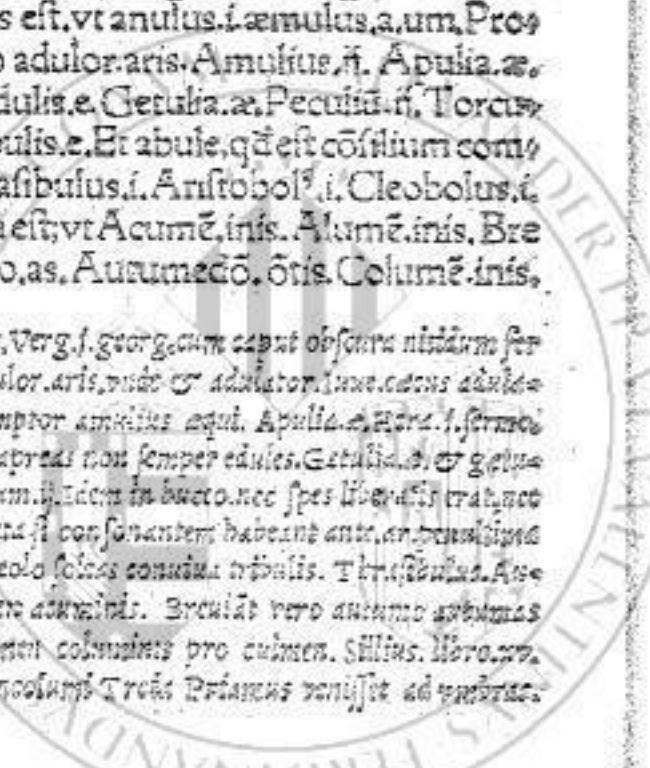 s eſt.vt anulus.i.æmulus,a,um.Pro⸗
adulor.aris.Amulius.ñ. Apulia.æ.
dulis.e.Getulia.æ.Peculiū.ñ.Torcu⸗
ulis.e.Et abule,qđ eſt cōſilium com⸗
aſibulus.i.Ariſtobolꝰ.i.Cleobolus.i.
eſt;vt Acumē.inis.Alumē.inis.Bre
o.as.Autumedō.ōtis.Columē.inis.
Verg.j.georg.cum caput obſcura nitidum fer
ulor.aris,unde & adulator.Iuue.cætus adula⸗
mptor amulius æqui. Apulia.æ.Hora.j.ſermo.
apreas non ſemper edules.Getulia.æ.& getu⸗
um.ij.Idem in bucco.nec ſpes libertatis erat,nec
ſi conſonantem habeant ante.ar.penultima
eolo ſoleas conuiua tribulis. Thraſibulus.Ari⸗
acuminis. Breuiāt vero autumo autumas
men columinis pro culmen. Sillius. libro.xv.
Troiæ Priamus veniſſet ad umbras.